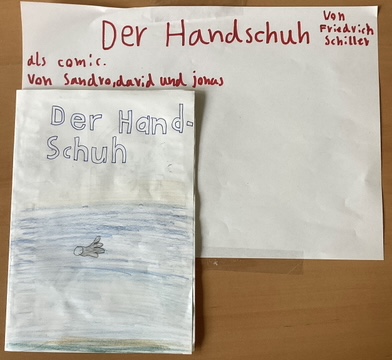 Der Handschuh
Von
Friedrich
Schiller
als comic.
Von Sandro,david und jonas
Der Hand-
Schuh